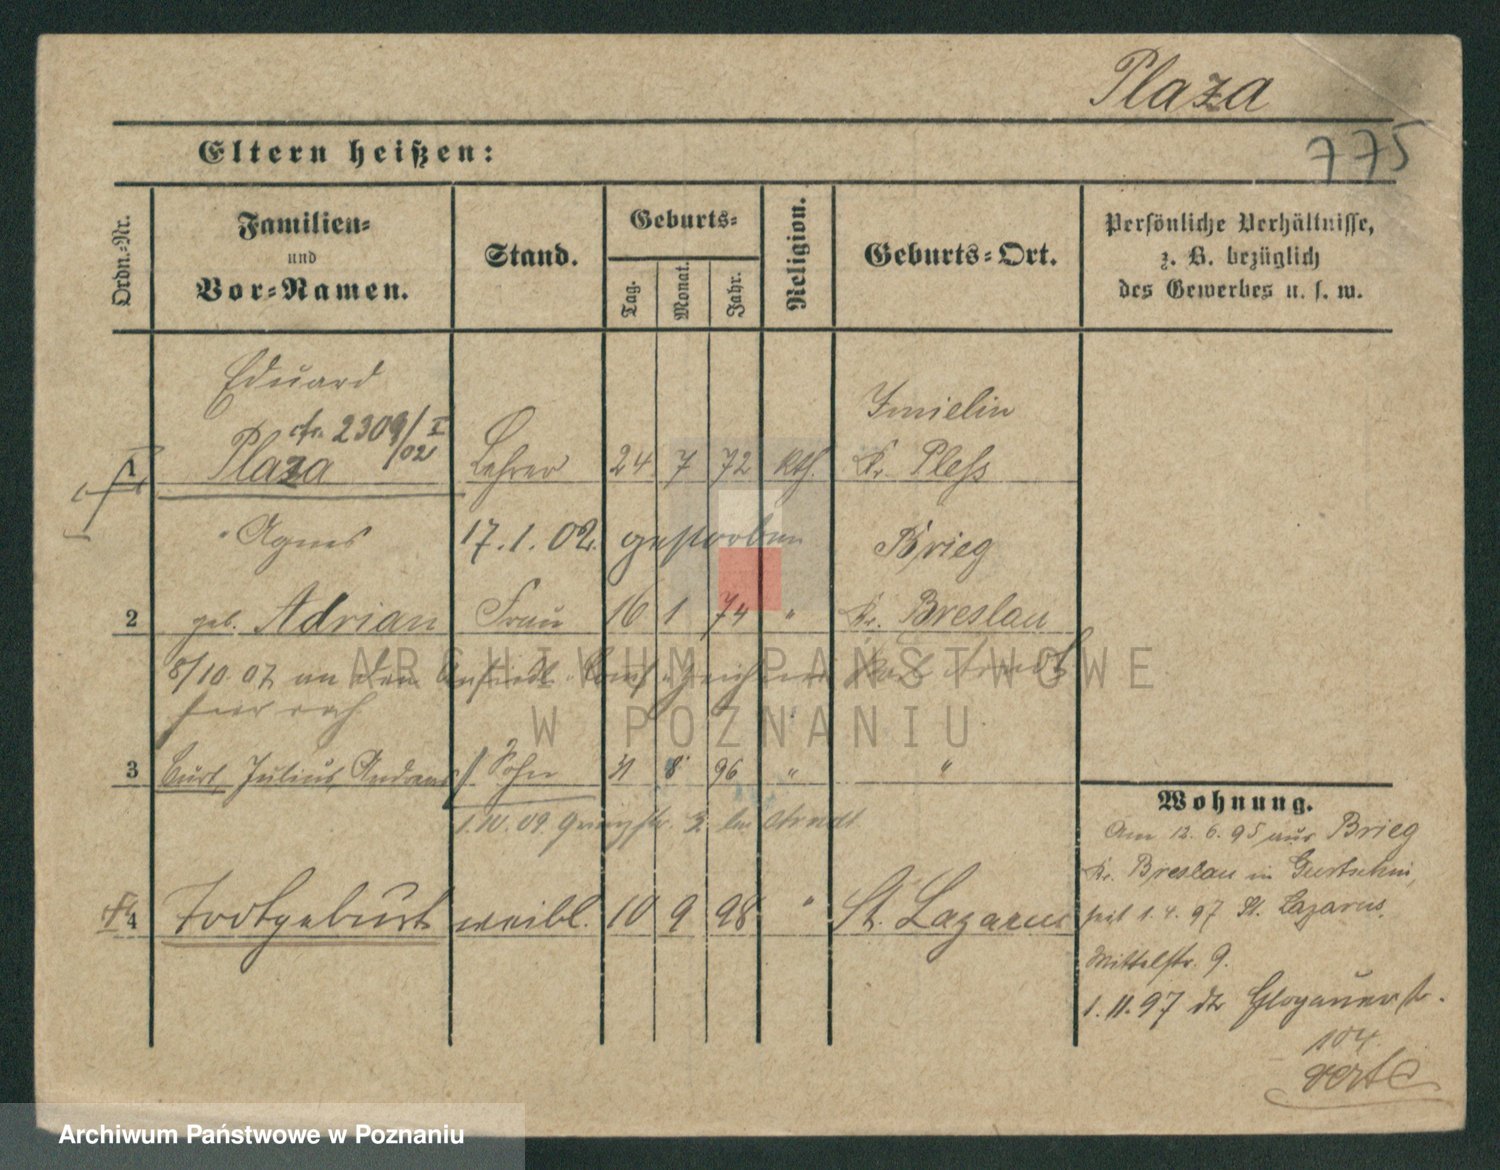 Plaza
775
Eltern heißen:
Ordn.-Nr.
Familien-
und
Vor-Namen.
Stand.
Geburts-
Tag.
Monat.
Jahr.
Religion.
Geburts-Ort.
Persönliche Verhältnisse,
z. B. bezüglich
des Gewerbes u. s. w.
Eduard
cfr. 2309/I
/02
1 Plaza Lehrer 24 7 72 kth. Kr. Pleß
Imielin
Agnes 17.1.02. gestorben Brieg
2 geb. Adrian Frau 16 1 74 " Kr. Breslau
8/10 07 an den Ansiedl.
3 Curt Julius Andreas Sohn 31 8 96 " "
1.10.09 3. bei Arndt
4 Todtgeburt weibl. 10 9 98 " St. Lazarus
Wohnung.
Am 12. 6. 95 aus Brieg
Kr. Breslau in Gurtschin,
seit 1. 4. 97 St. Lazarus,
Mittelstr. 9.
1. 11. 97 Glogauerstr.
104.
verte
ARCHIWUM PAŃSTWOWE
W POZNANIU
Archiwum Państwowe w Poznaniu